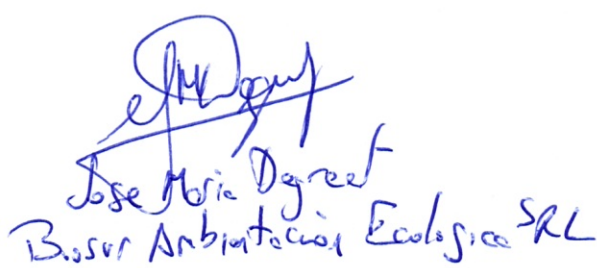 Jose Maria Degreef
Biosur Ambientación Ecologica SRL